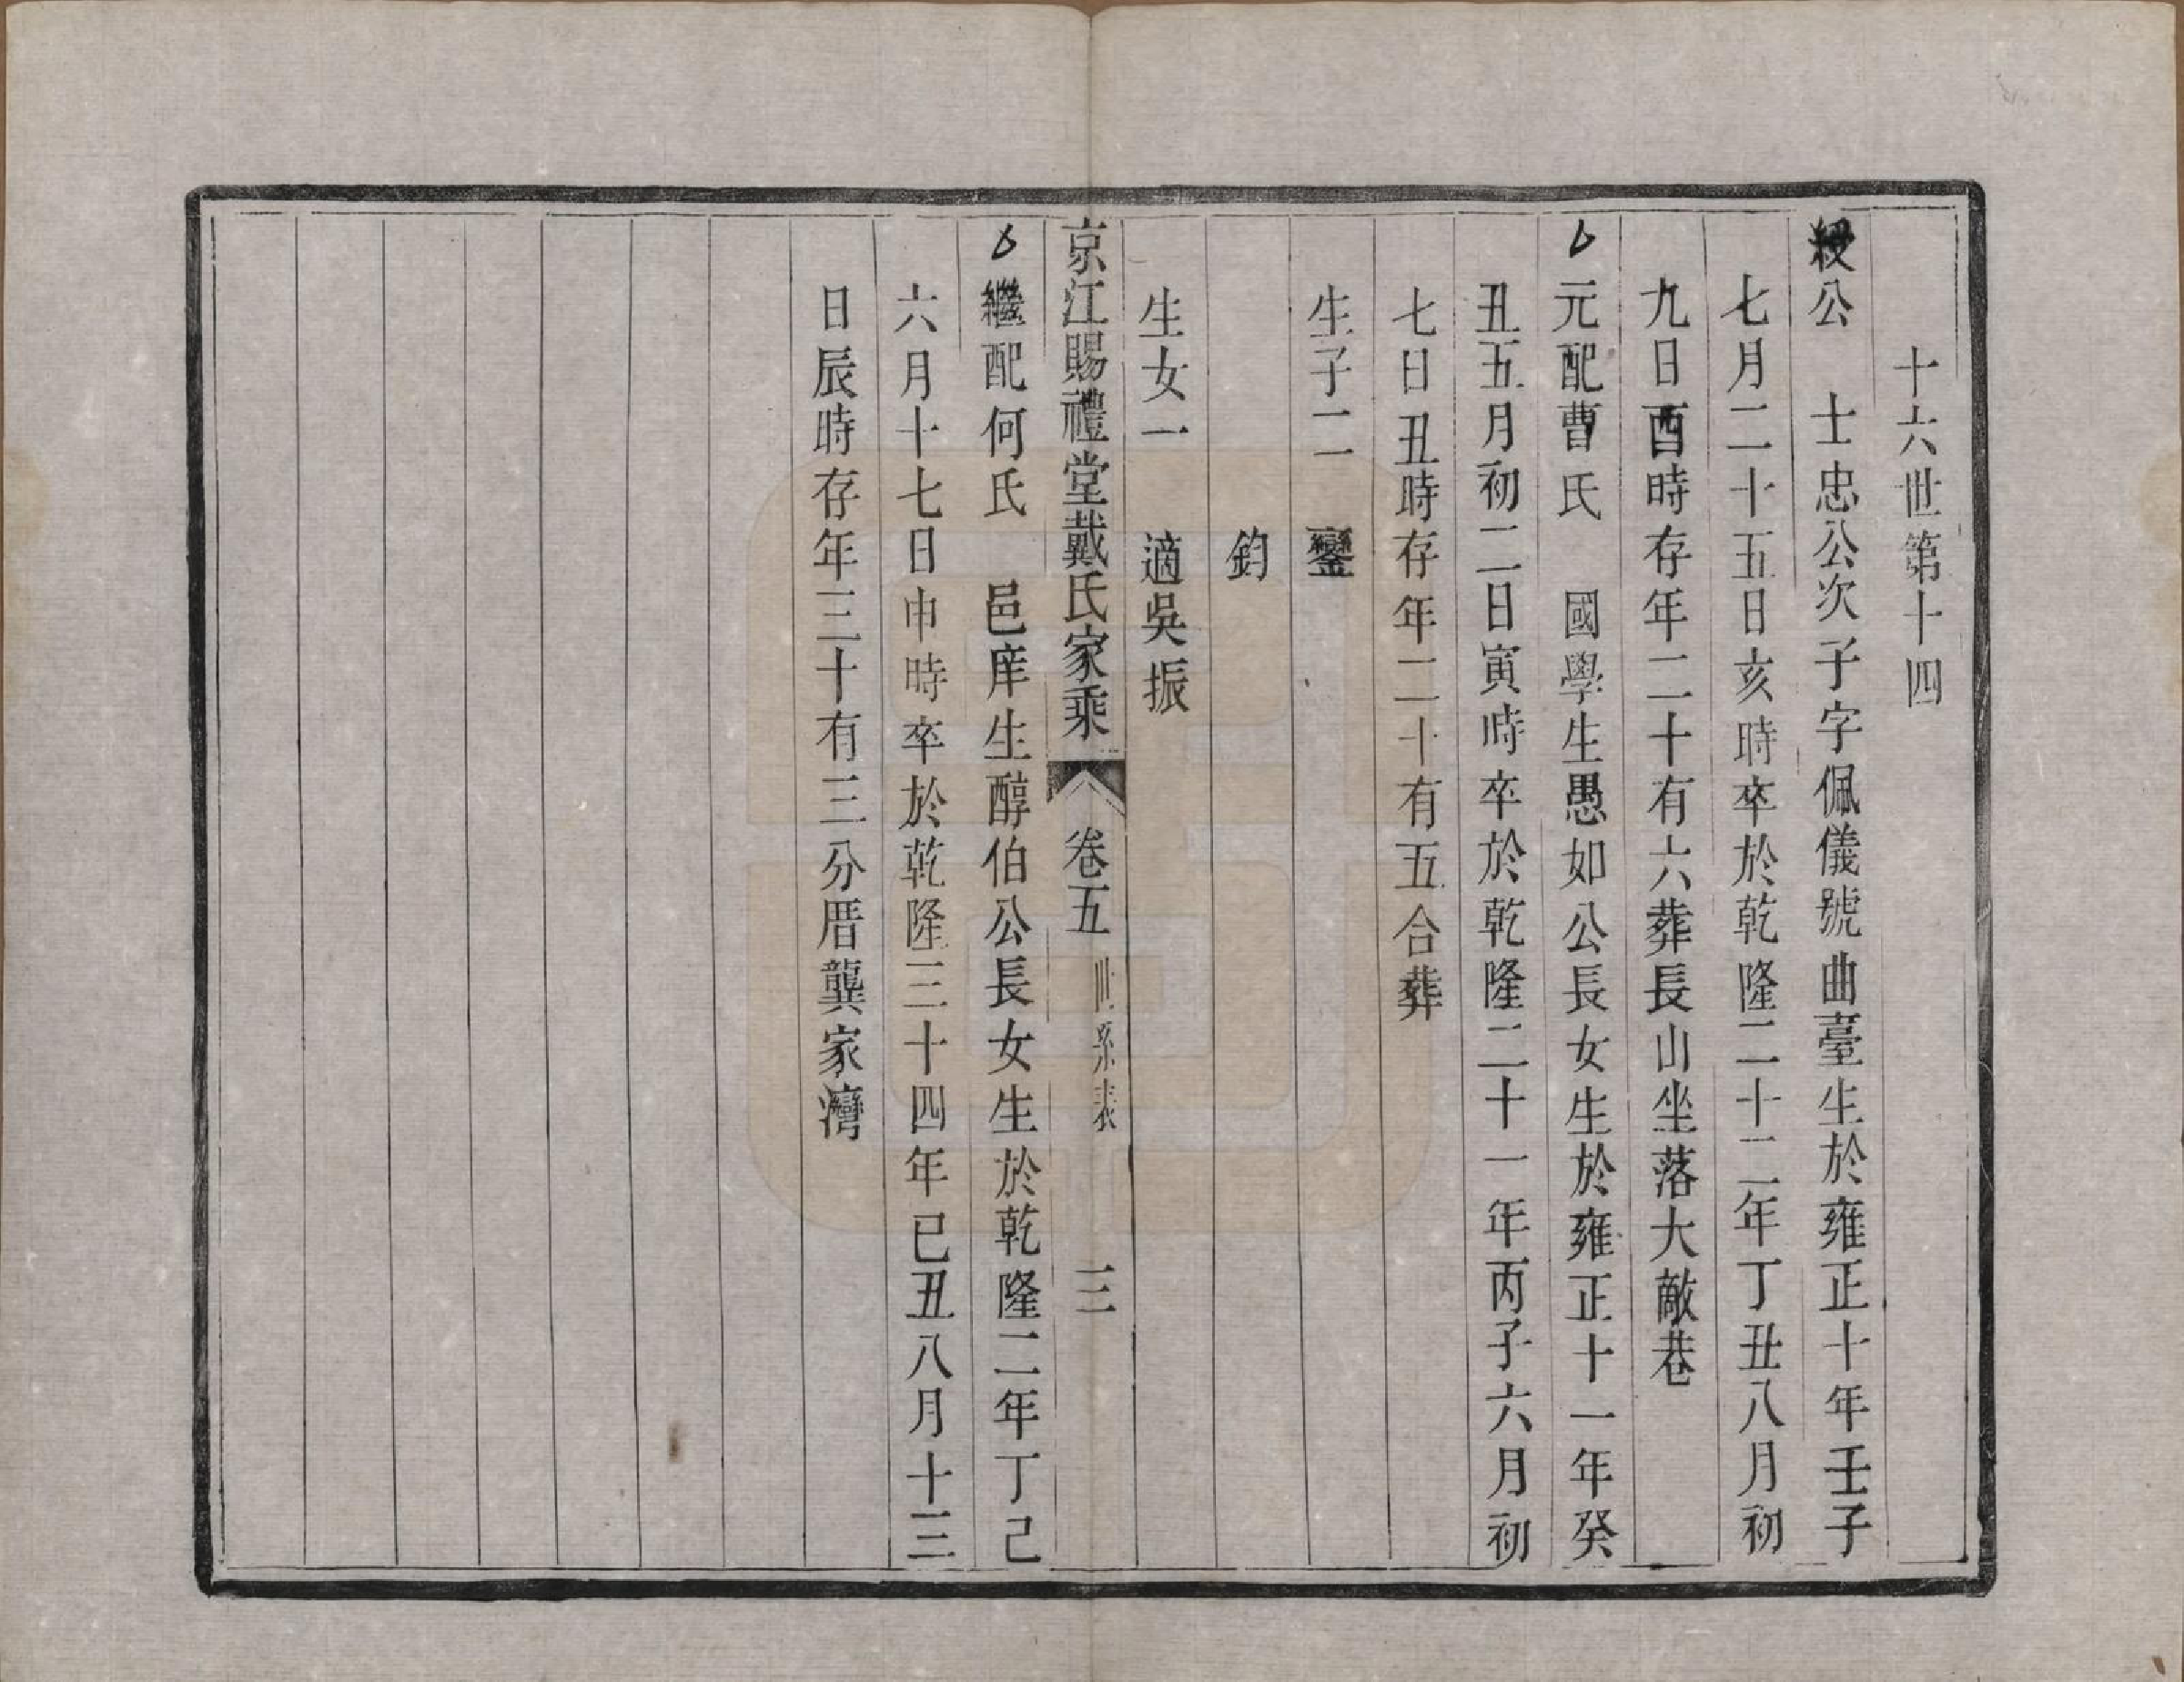 十六世第十四
公　士忠公次子字佩儀號曲臺生於雍正十年壬子
七月二十五日亥時卒於乾隆二十二年丁丑八月初
九日酉時存年二十有六葬長山坐落大敵巷
元配曹氏　國學生愚如公長女生於雍正十一年癸
丑五月初二日寅時卒於乾隆二十一年丙子六月初
七日丑時存年二十有五合葬
生子二　鑾
鈞
生女一　適吳振
京江賜禮堂戴氏家乘　卷五　世系表　三
繼配何氏　邑庠生醇伯公長女生於乾隆二年丁己
六月十七日申時卒於乾隆三十四年已丑八月十三
日辰時存年三十有三分厝龔家灣